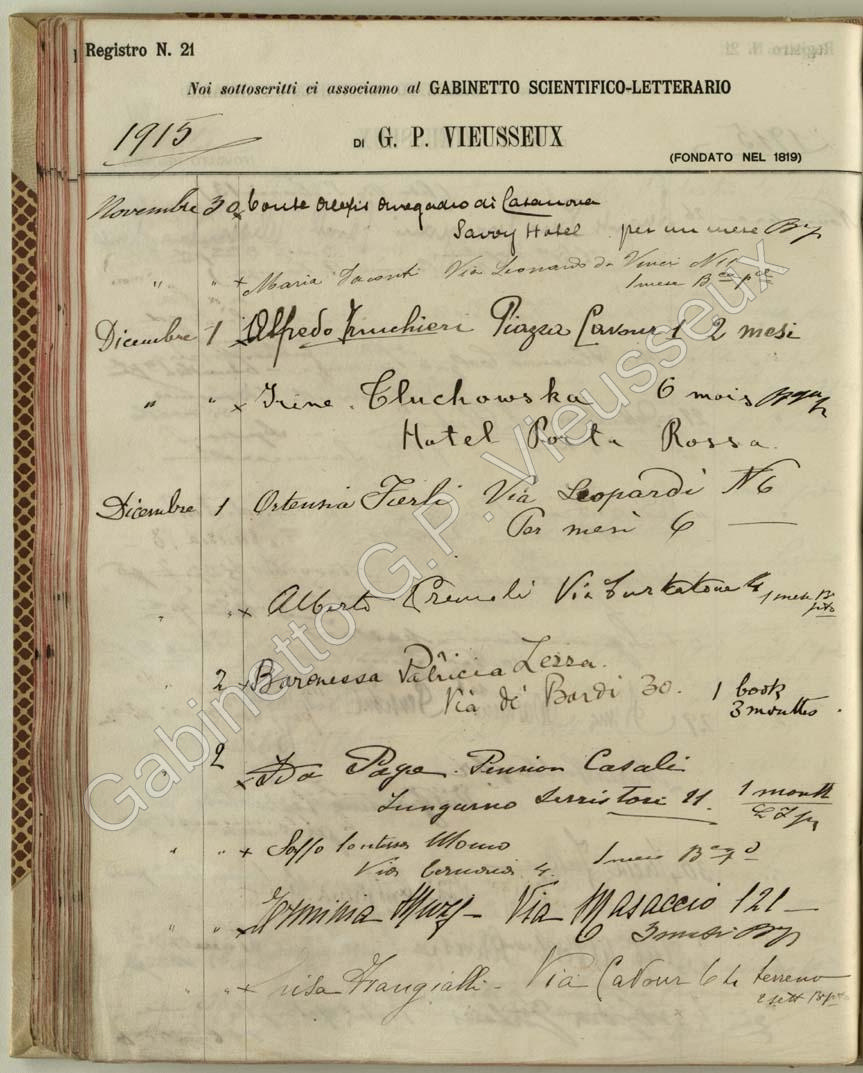 Registro N. 21
Noi sottoscritti ci associamo al GABINETTO SCIENTIFICO-LETTERARIO
1915
DI G. P. VIEUSSEUX
(FONDATO NEL 1819)
Novembre 30 Conte Alexis di Casanova
Savoy Hotel per un mese
" " x Maria Via Leonardo da Vinci
1 mese
Dicembre 1 x Alfredo Piazza Cavour 1 2 mesi
" " x Irène Tluchowska 6 mois
Hotel Porta Rossa
Dicembre 1 Ortensia Fierli Via Leopardi N 6
Per mesi 6 —
" x Alberto Via Curtatone 4 1 mese
2 x Baronessa Patricia Lezza.
Via de' Bardi 30. 1 book
3 months
2 x Ida Page. Pension Casali
Lungarno Serristori 11. 1 month
" " x Saffo Momo
Via 4. 1 mese
" " x Erminia Via Masaccio 121 —
3 mesi
" " x Luisa Frangialli - Via Cavour terreno
2 sett
Gabinetto G.P. Vieusseux